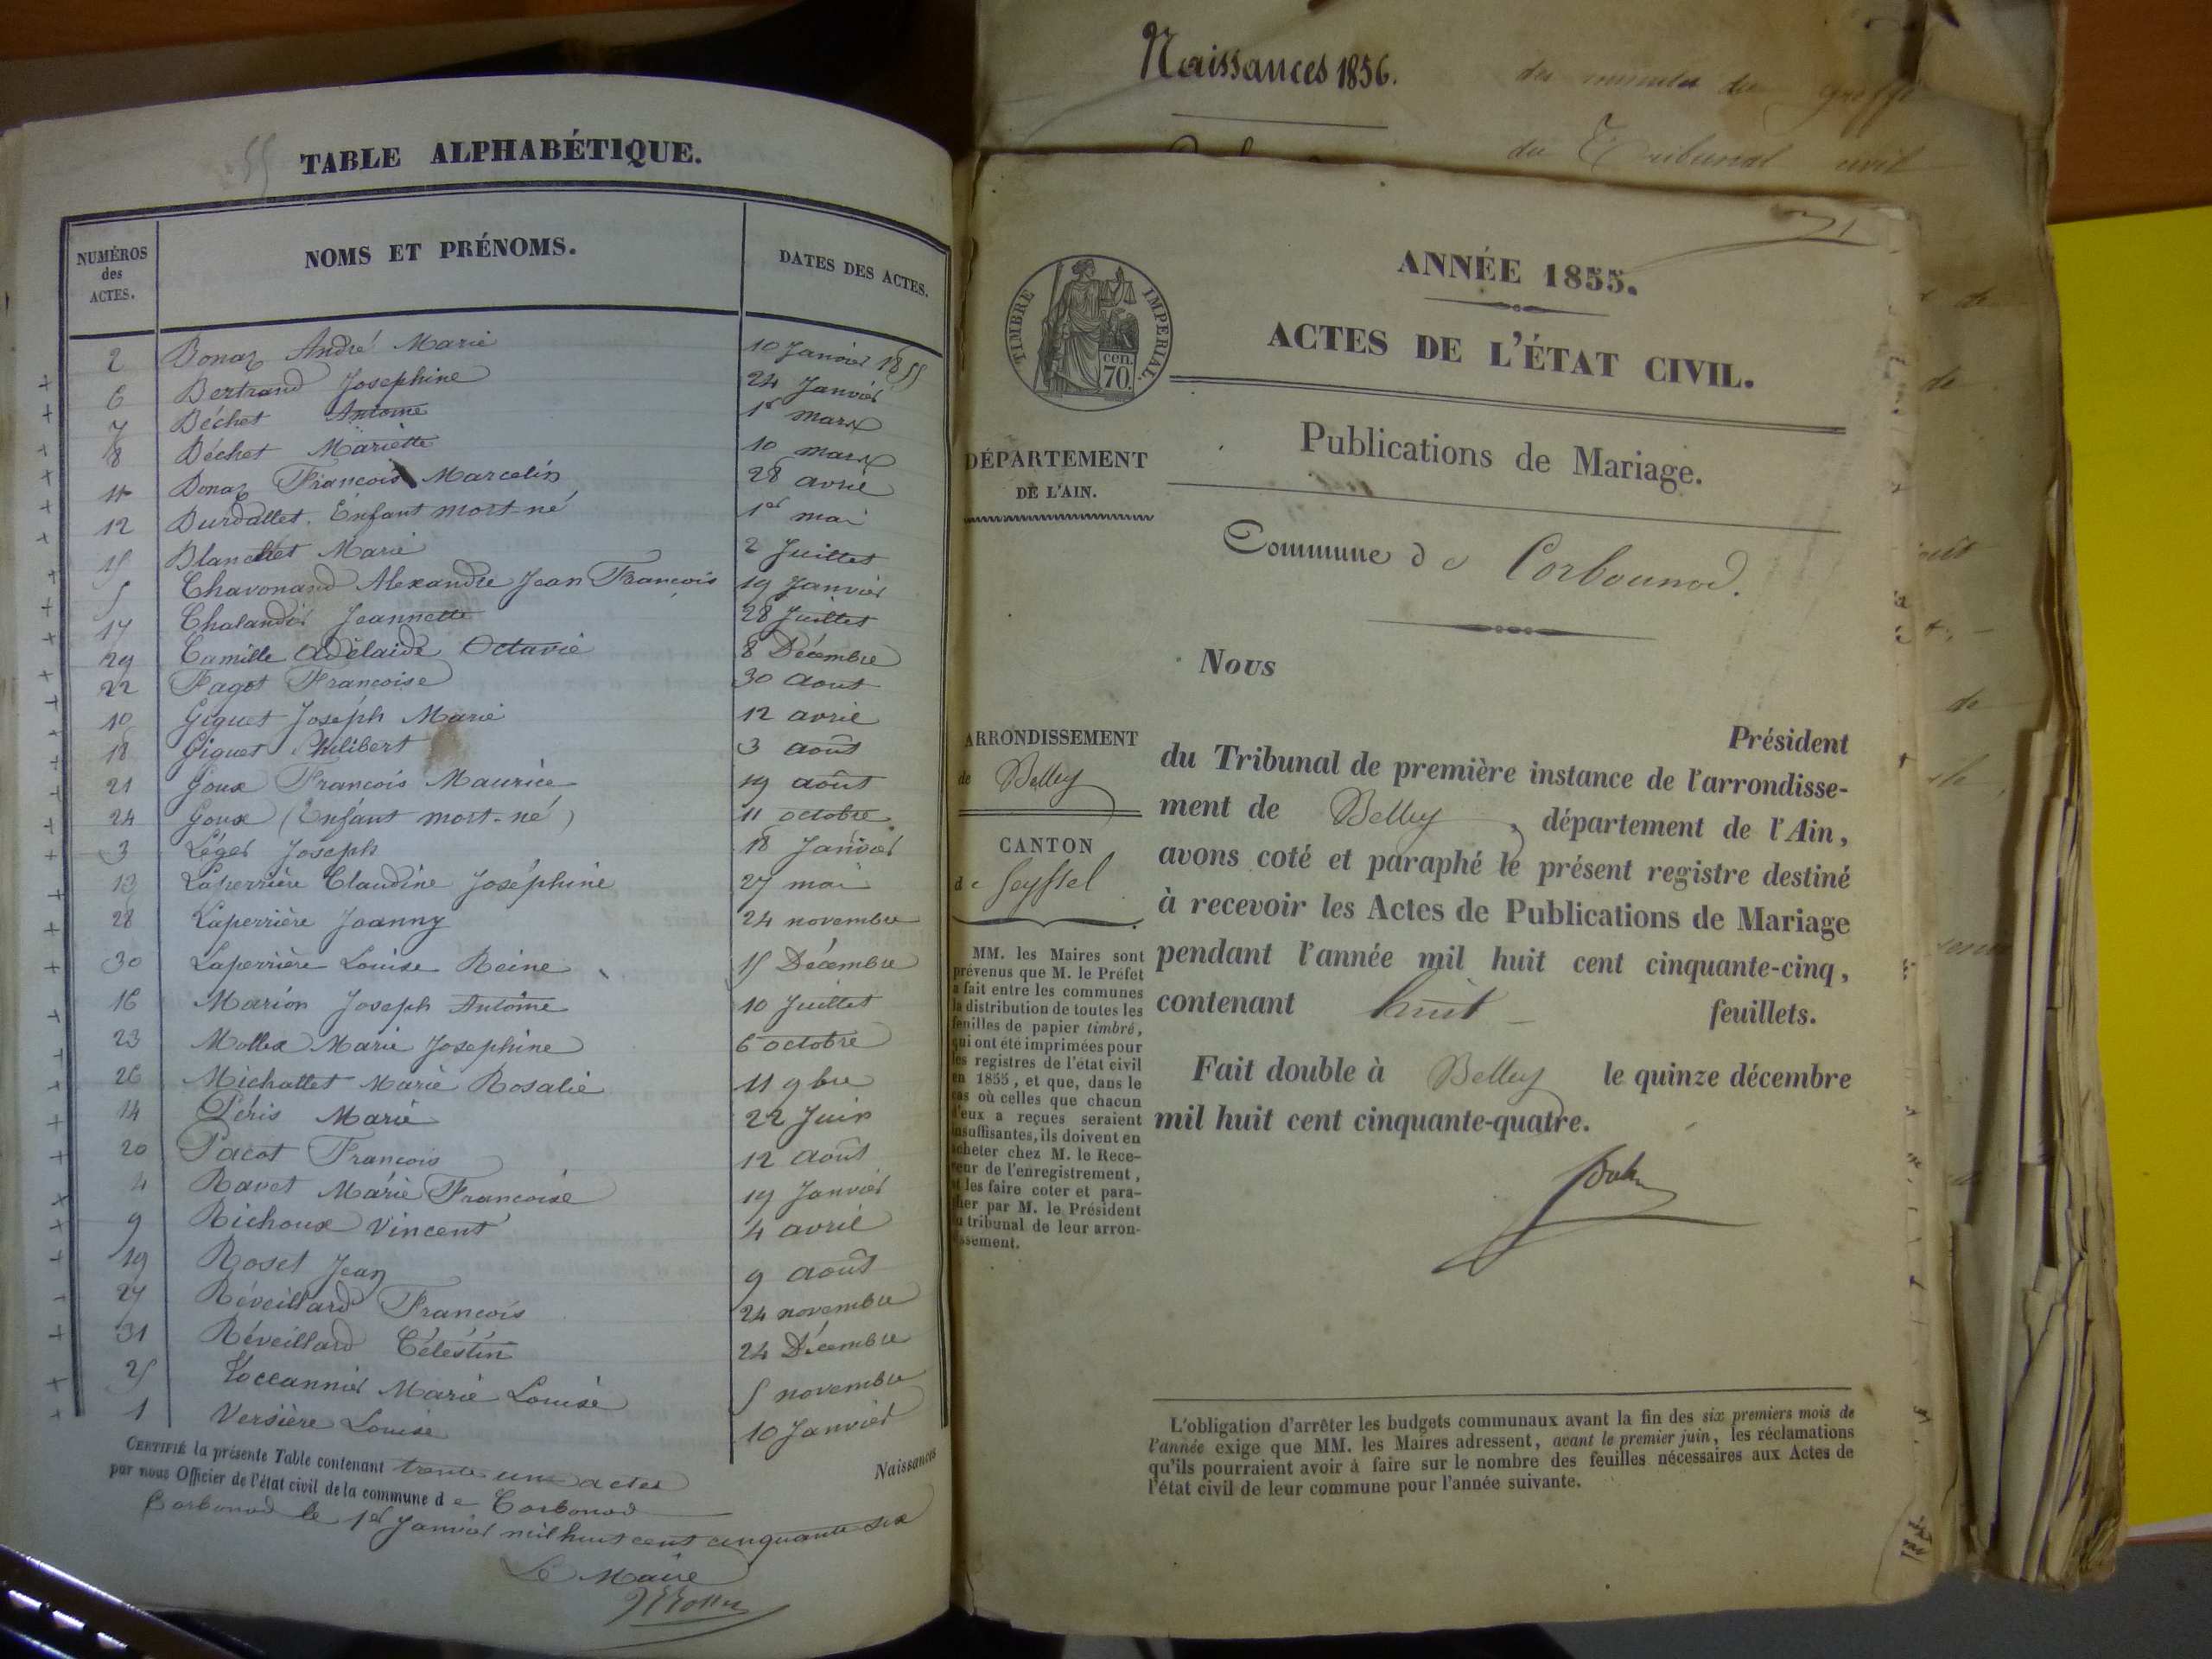 TABLE ALPHABÉTIQUE.
NUMÉROS des ACTES. NOMS ET PRÉNOMS. DATES DES ACTES.
2 Bonaz André Marie 10 Janvier 1855
6 Bertrand Josephine 24 Janvier
7 Béchet Antoine 1er mars
8 Béchet Mariette 10 mars
11 Bonaz François Marcelin 28 avril
12 Burdallet. Enfant mort-né 1er mai
15 Blanchet Marie 2 Juillet
5 Chavonand Alexandre Jean François 19 Janvier
17 Chalandier Jeannette 28 Juillet
29 Camille Adélaide Octavie 8 Décembre
22 Fagot Françoise 30 Aout
10 Giguet Joseph Marie 12 avril
18 Giguet Philibert 3 août
21 Goux François Maurice 19 août
24 Goux (Enfant mort-né) 11 octobre
3 Léger Joseph 18 Janvier
13 Laperrière Claudine Joséphine 27 mai
28 Laperrière Joanny 24 novembre
30 Laperrière Louise Reine 15 Décembre
16 Marion Joseph Antoine 10 Juillet
23 Mollex Marie Josephine 6 octobre
26 Michallet Marie Rosalie 11 9bre
14 Péris Marie 22 Juin
20 Pacot François 12 août
4 Ravet Marie Françoise 19 Janvier
9 Richoux Vincent 4 avril
19 Roset Jean 9 août
27 Réveillard François 24 novembre
31 Réveillard Célestin 24 Décembre
25 Voccannier Marie Louise 5 novembre
1 Versière Louise 10 Janvier
Naissances
CERTIFIÉ la présente Table contenant trente une actes
par nous Officier de l'état civil de la commune de Corbonod
Corbonod le 1er Janvier mil huit cent cinquante six
Le Maire
Naissances 1856.
des minutes du greffe
du Tribunal civil
ANNÉE 1855.
ACTES DE L'ÉTAT CIVIL.
TIMBRE IMPERIAL.
cen.
70.
Publications de Mariage.
DÉPARTEMENT
DE L'AIN.
Commune de Corbounod.
Nous
Président
ARRONDISSEMENT
de Belley
CANTON
de Seyssel
du Tribunal de première instance de l'arrondisse-
ment de Belley, département de l'Ain,
avons coté et paraphé le présent registre destiné
à recevoir les Actes de Publications de Mariage
pendant l'année mil huit cent cinquante-cinq,
contenant huit feuillets.
Fait double à Belley le quinze décembre
mil huit cent cinquante-quatre.
MM. les Maires sont
prévenus que M. le Préfet
a fait entre les communes
la distribution de toutes les
feuilles de papier timbré,
qui ont été imprimées pour
les registres de l'état civil
en 1855, et que, dans le
cas où celles que chacun
d'eux a reçues seraient
insuffisantes, ils doivent en
acheter chez M. le Rece-
veur de l'enregistrement,
et les faire coter et para-
pher par M. le Président
du tribunal de leur arron-
dissement.
L'obligation d'arrêter les budgets communaux avant la fin des six premiers mois de
l'année exige que MM. les Maires adressent, avant le premier juin, les réclamations
qu'ils pourraient avoir à faire sur le nombre des feuilles nécessaires aux Actes de
l'état civil de leur commune pour l'année suivante.